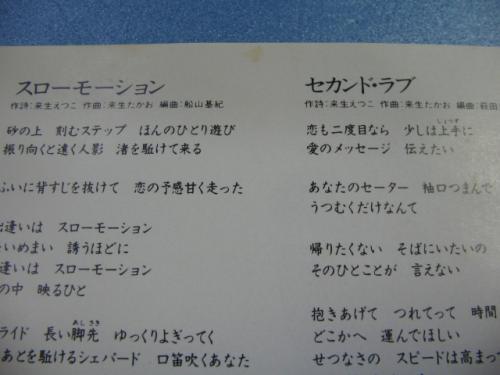 スローモーション
作詩:来生えつこ 作曲:来生たかお 編曲:船山基紀
砂の上 刻むステップ ほんのひとり遊び
振り向くと遠く人影 渚を駈けて来る
ふいに背すじを抜けて 恋の予感甘く走った
出逢いは スローモーション
いめまい 誘うほどに
逢いは スローモーション
の中 映るひと
あしさき
ライド 長い脚先 ゆっくりよぎってく
あとを駈けるシェパード 口笛吹くあなた
セカンド・ラブ
作詩:来生えつこ 作曲:来生たかお 編曲:萩田
じょうず
恋も二度目なら 少しは上手に
愛のメッセージ 伝えたい
あなたのセーター 袖口つまんで
うつむくだけなんて
帰りたくない そばにいたいの
そのひとことが 言えない
抱きあげて つれてって 時間
どこかへ 運んでほしい
せつなさの スピードは高まっ